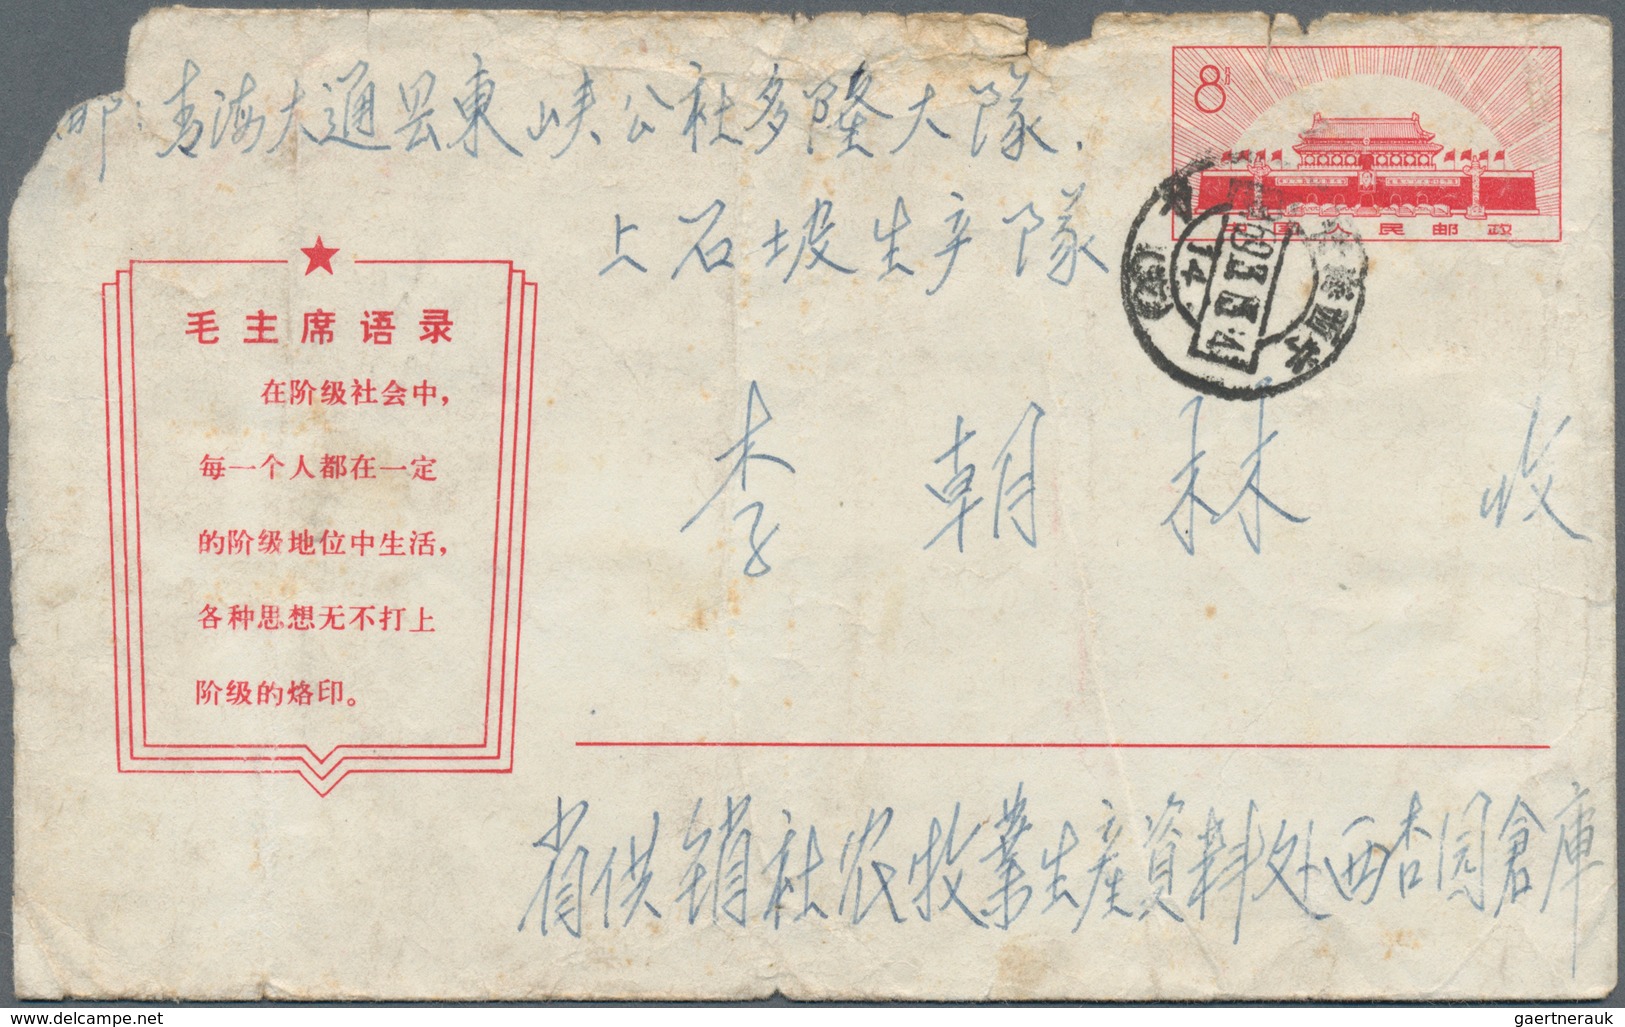 邮:青海大通县東峡公社多隆大隊.
上石坡生产隊
8分
中国人民邮政
14
毛主席语录
在阶级社会中,
每一个人都在一定
的阶级地位中生活,
各种思想无不打上
阶级的烙印。
李朝林收
省供销社农牧業生産資料处西杏园倉庫
www.delcampe.net
gaertnerauk